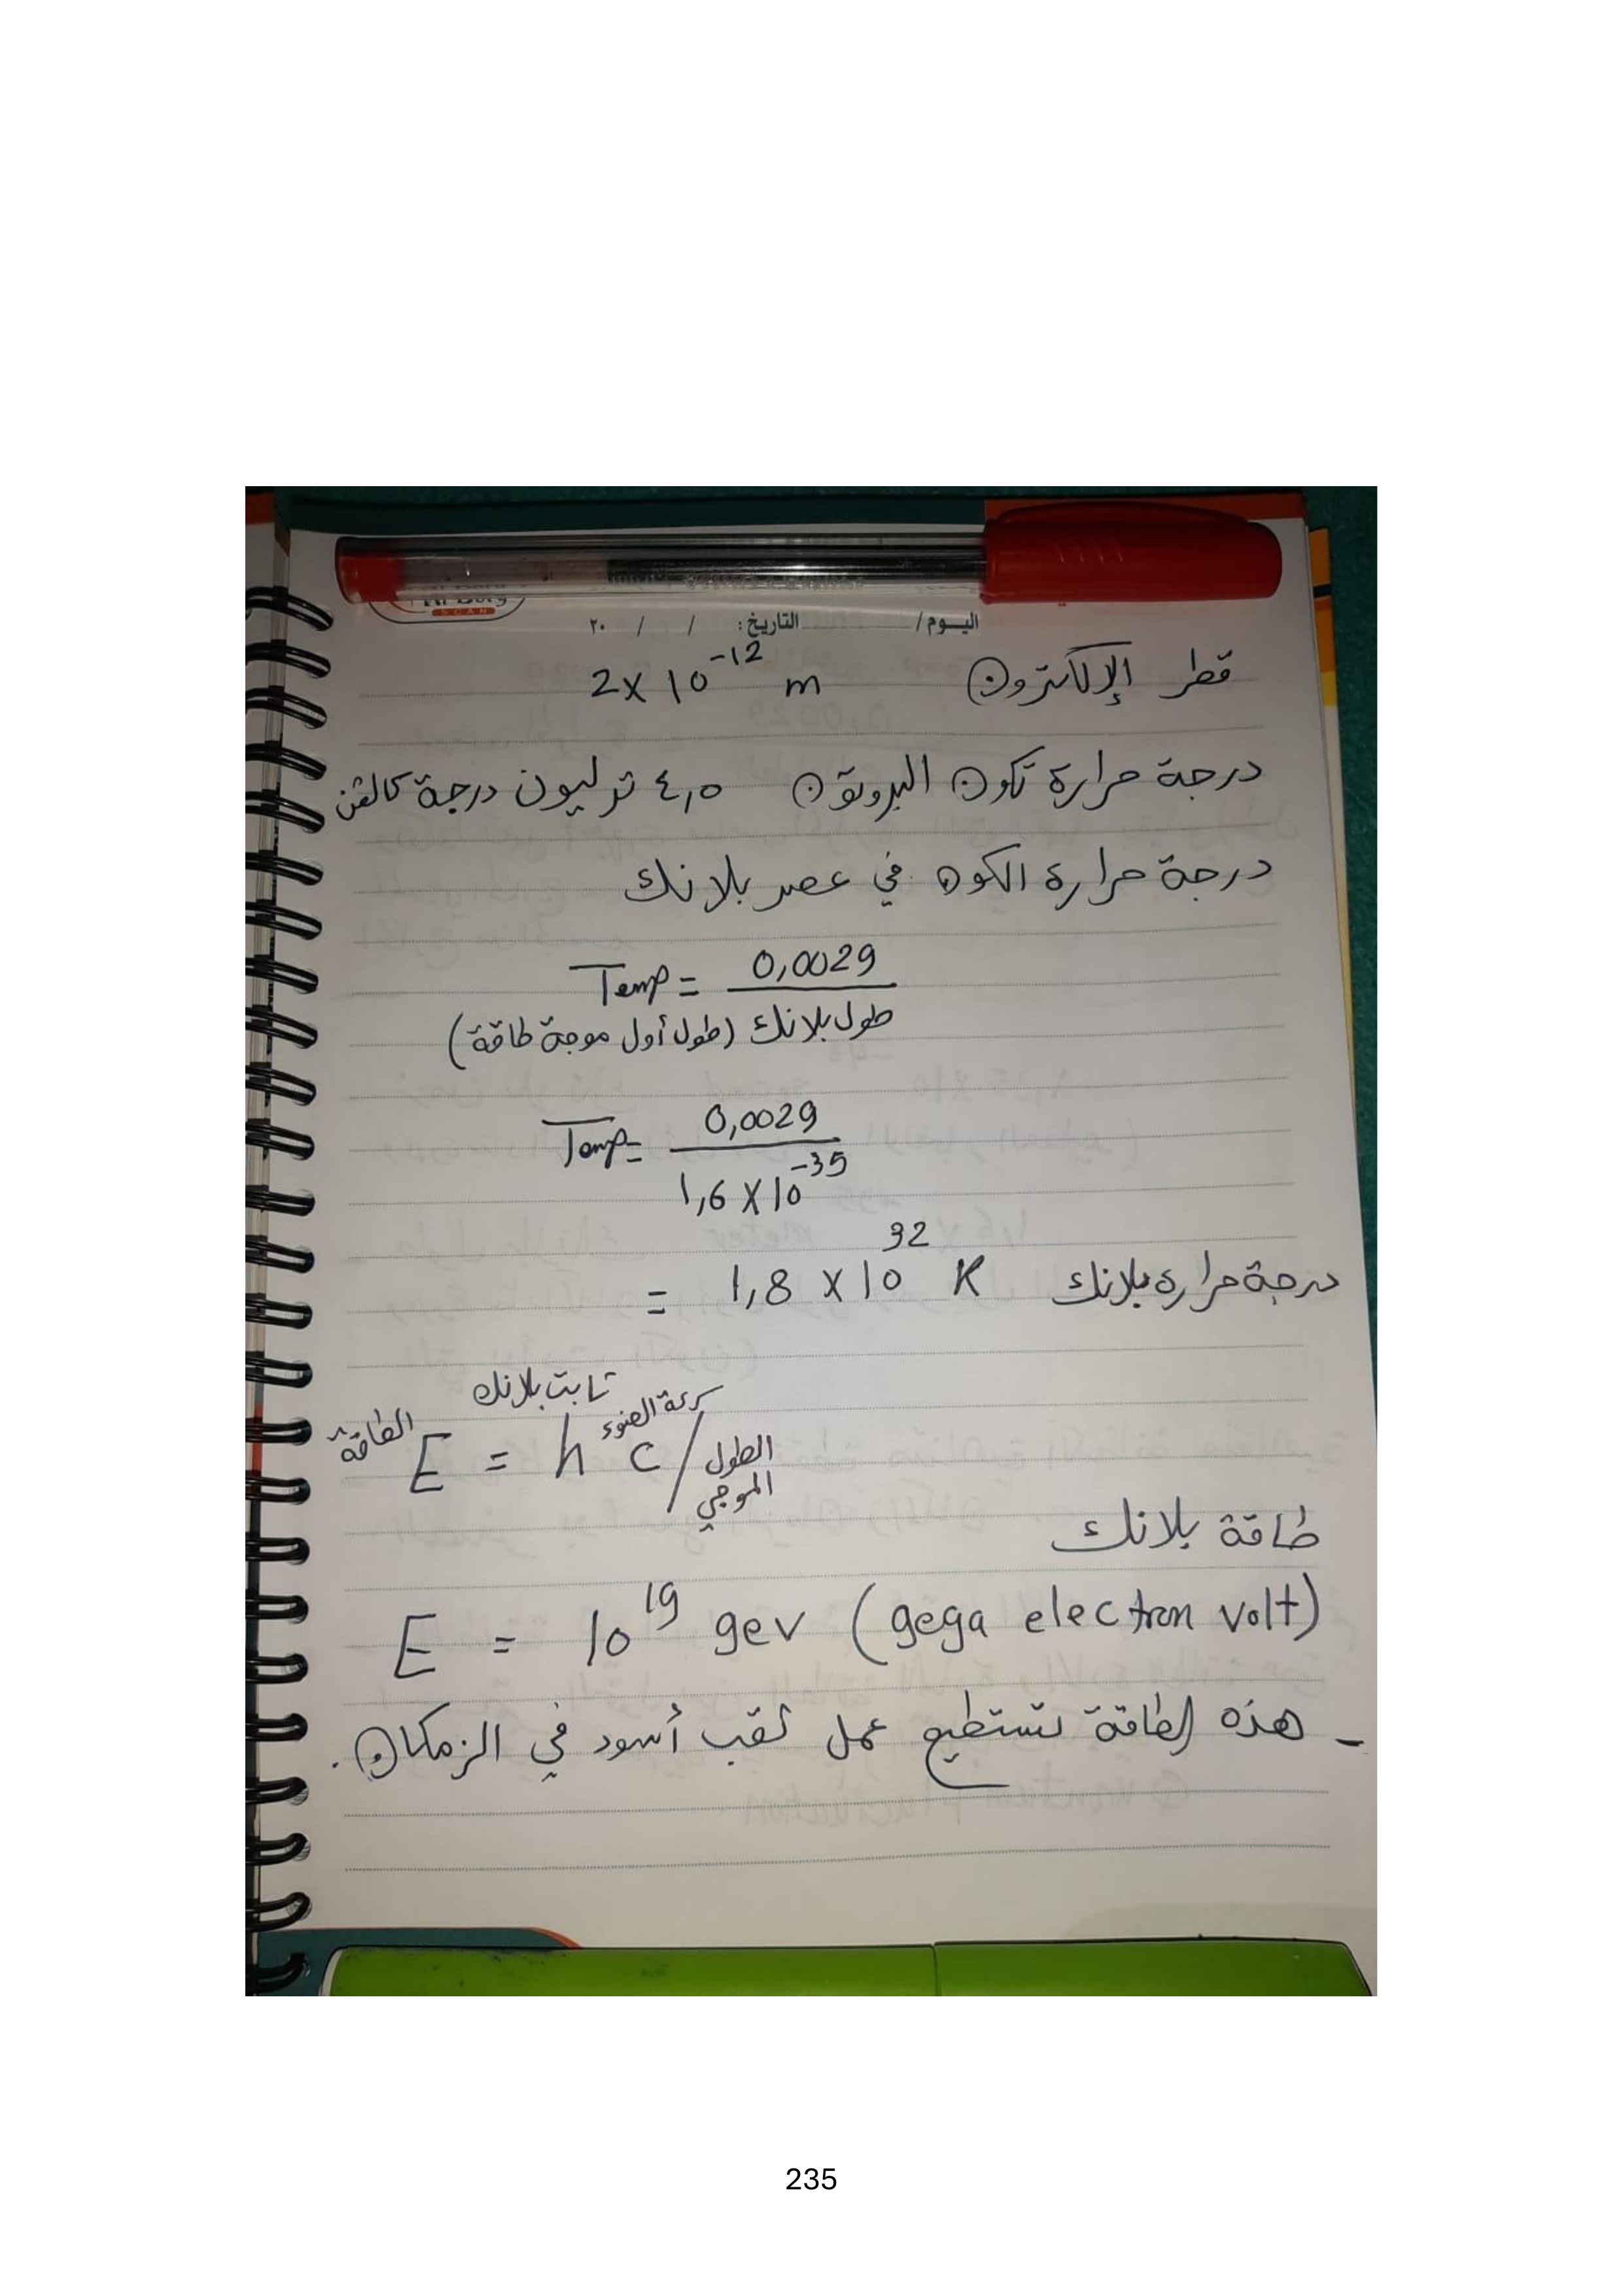 SCAN
اليوم / التاريخ: / / ٢٠
قطر الإلكترون 2x10^-12 m
درجة حرارة تكون البروتون ٤,٥ تريليون درجة كالفن
درجة حرارة الكون في عصر بلانك
Temp = 0,0029
طول بلانك (طول أول موجة طاقة)
Temp = 0,0029
1,6 X 10^-35
= 1,8 X 10^32 K درجة حرارة بلانك
ثابت بلانك سرعة الضوء
الطاقة E = h c / الطول الموجي
طاقة بلانك
E = 10^19 gev (gega electron volt)
- هذه الطاقة تستطيع عمل ثقب أسود في الزمكان.
235